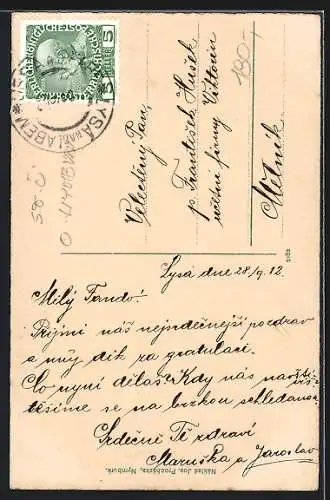 5
LYSÁ NAD LABEM
180,-
Velectěný Pan,
p. František Hušek
účetní firmy Vittorin
Mělník
Lysá dne 28/9. 12.
Milý Fando!
Přijmi náš nejsrdečnější pozdrav
a můj dík za gratulaci.
Co nyní děláš? Kdy nás navštívíš
těšíme se na brzkou schledanou.
Srdečně Tě zdraví
Maruška a Jaroslav
Náklad Jos. Procházka, Nymburk.